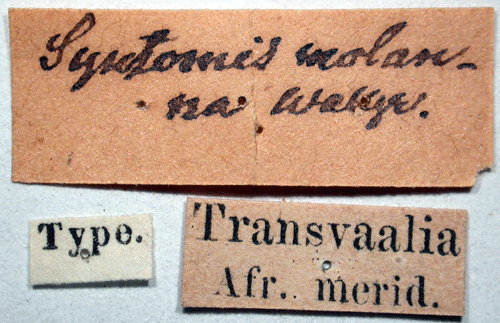 Syntomis molan-
na Wallgr.
Type.
Transvaalia
Afr. merid.